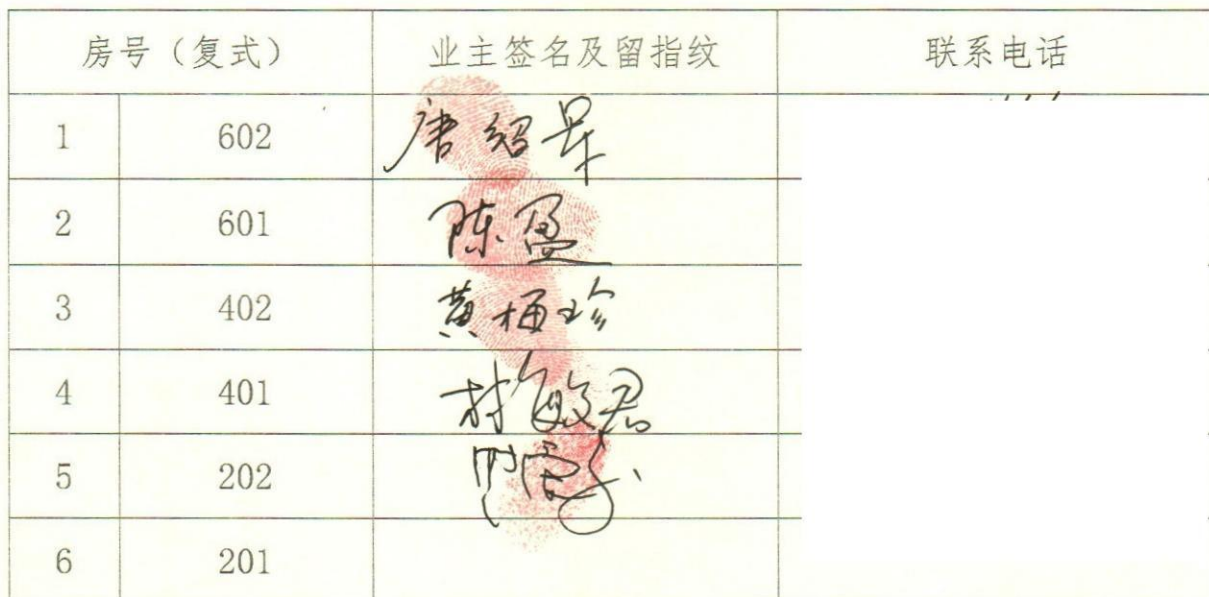 房号（复式） 业主签名及留指纹 联系电话
1 602 唐绍
2 601 陈盈
3 402 黄梅珍
4 401 敏君
5 202
6 201